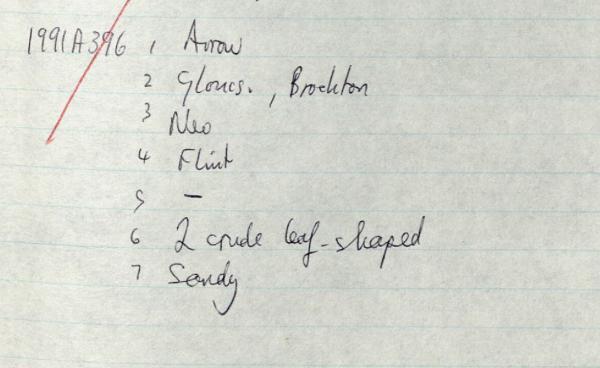 1991A396 1 Arrow
2 Gloucs., Brockton
3 Neo
4 Flint
5 –
6 2 crude leaf-shaped
7 Sandy